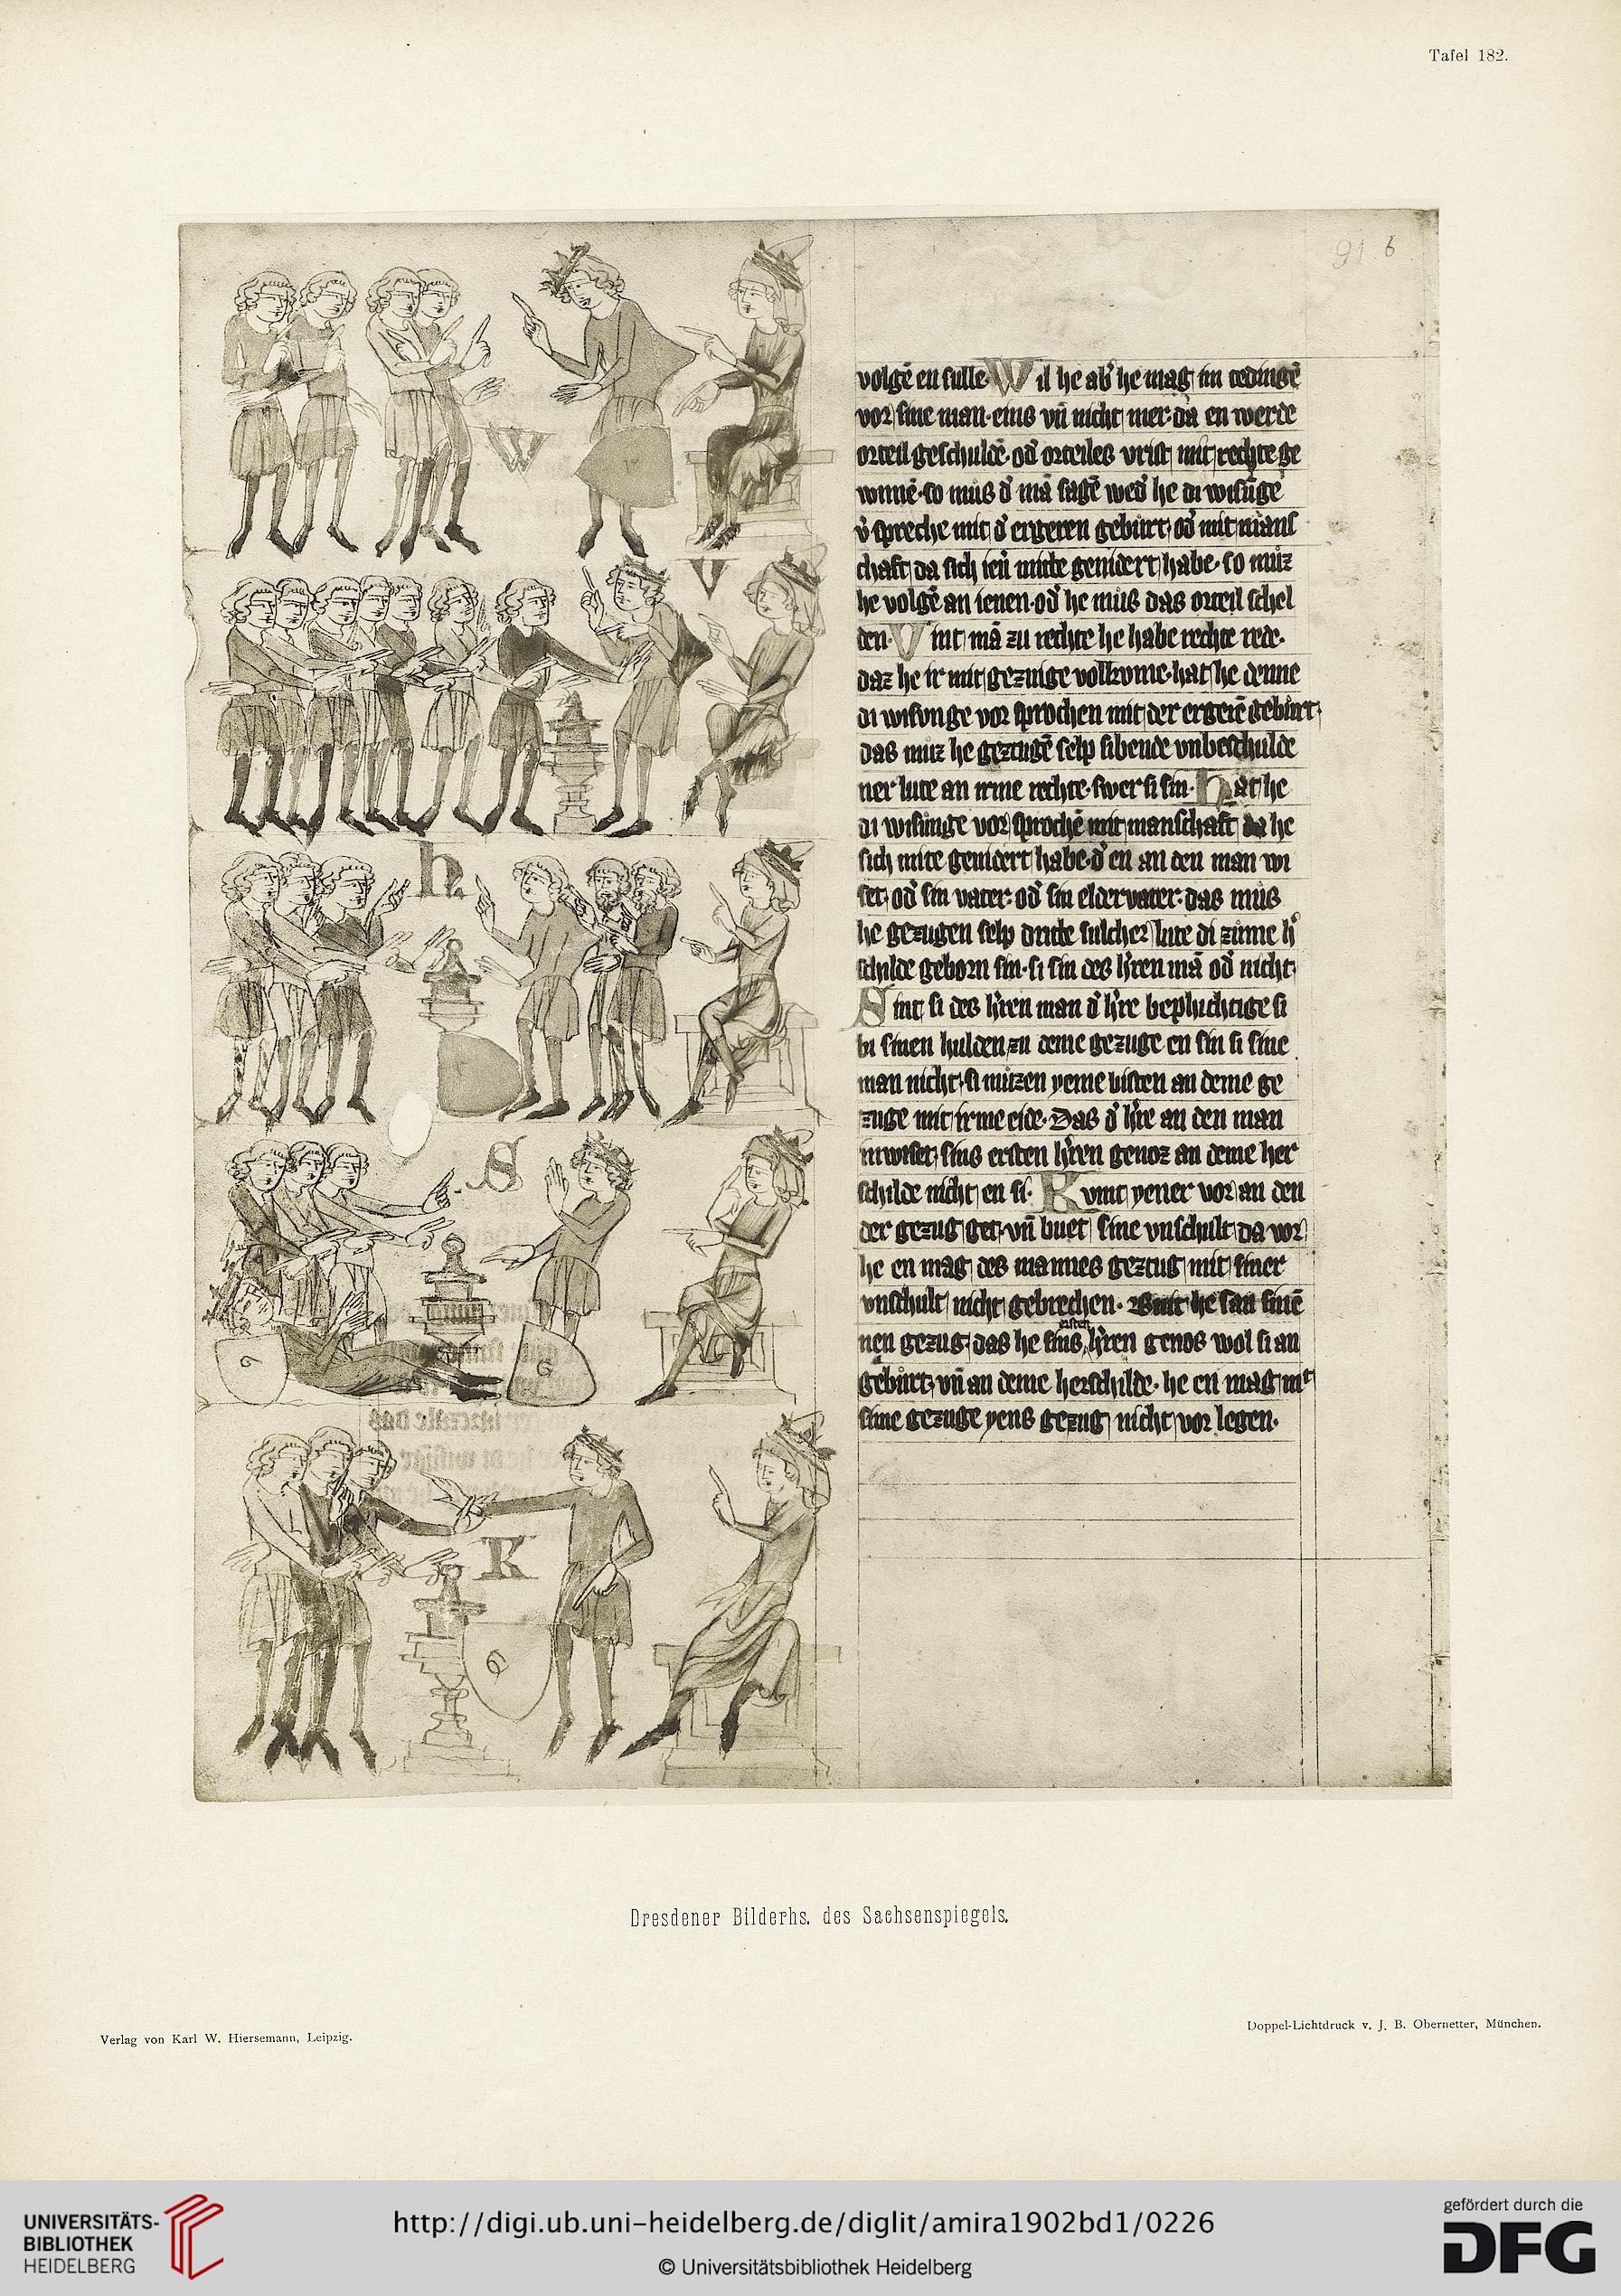 Tafel 182.
91 b
volgē en sulle· Wil he ab' he mag im tedingē
vor sine man· eins vn̄ nicht mer· da en werde
orteil geschuldē· od' orteiles vrist mit rechte ge
winnē· so mus d' mā sagē wed' he di wisūge
v'spreche mit d' ergeren geburt· od' mit mans
chaft da sich ien' mite genidert habe· so muz
he volgē an ienen· od' he mus das orteil schel
den· Vint mā zu rechte he habe rechte rede·
daz he ir mit gezuige volkome· hat he denne
di wisunge vor sprochen mit der ergerē geburt·
das muz he gezcugē selp sibende vnbeschulde
ner lute an irme rechte· swer si sin· Hat he
di wisunge vor sprochē mit manschaft da he
sich mite genidert habe· d' en an den man wi
set· od' sin vater· od' sin eldervater· das mus
he gezugen selp dritte sulcher lute di zume h'
schilde geborn sin· si sin des h'ren mā od' nicht·
Sint si des h'ren man d' h're beplichtige si
bi sinen hulden zu deme gezuge en sin si sine
man nicht· si muzen yeme bisten an deme ge
zuge mit irme eide· Das d' h're an den man
inwiset, sins ersten h'ren genoz an deme her
schilde nicht en si· Kumt yener vor an den
der gezug get· vn̄ buet sine vnschult da vor
he en mag des mannes gezcug mit siner
vnschult nicht gebrechen· he san sinē
nen gezug· das he sins ersten h'ren genos wol si an
geburt· vn̄ an deme herschilde· he en mag mt
sime gezuge yens gezug nicht vor legen·
W
V
h
S
K
Dresdener Bilderhs. des Sachsenspiegels.
Verlag von Karl W. Hiersemann, Leipzig.
Doppel-Lichtdruck v. J. B. Obernetter, München.
UNIVERSITÄTS-
BIBLIOTHEK
HEIDELBERG
http://digi.ub.uni-heidelberg.de/diglit/amira1902bd1/0226
© Universitätsbibliothek Heidelberg
gefördert durch die
DFG